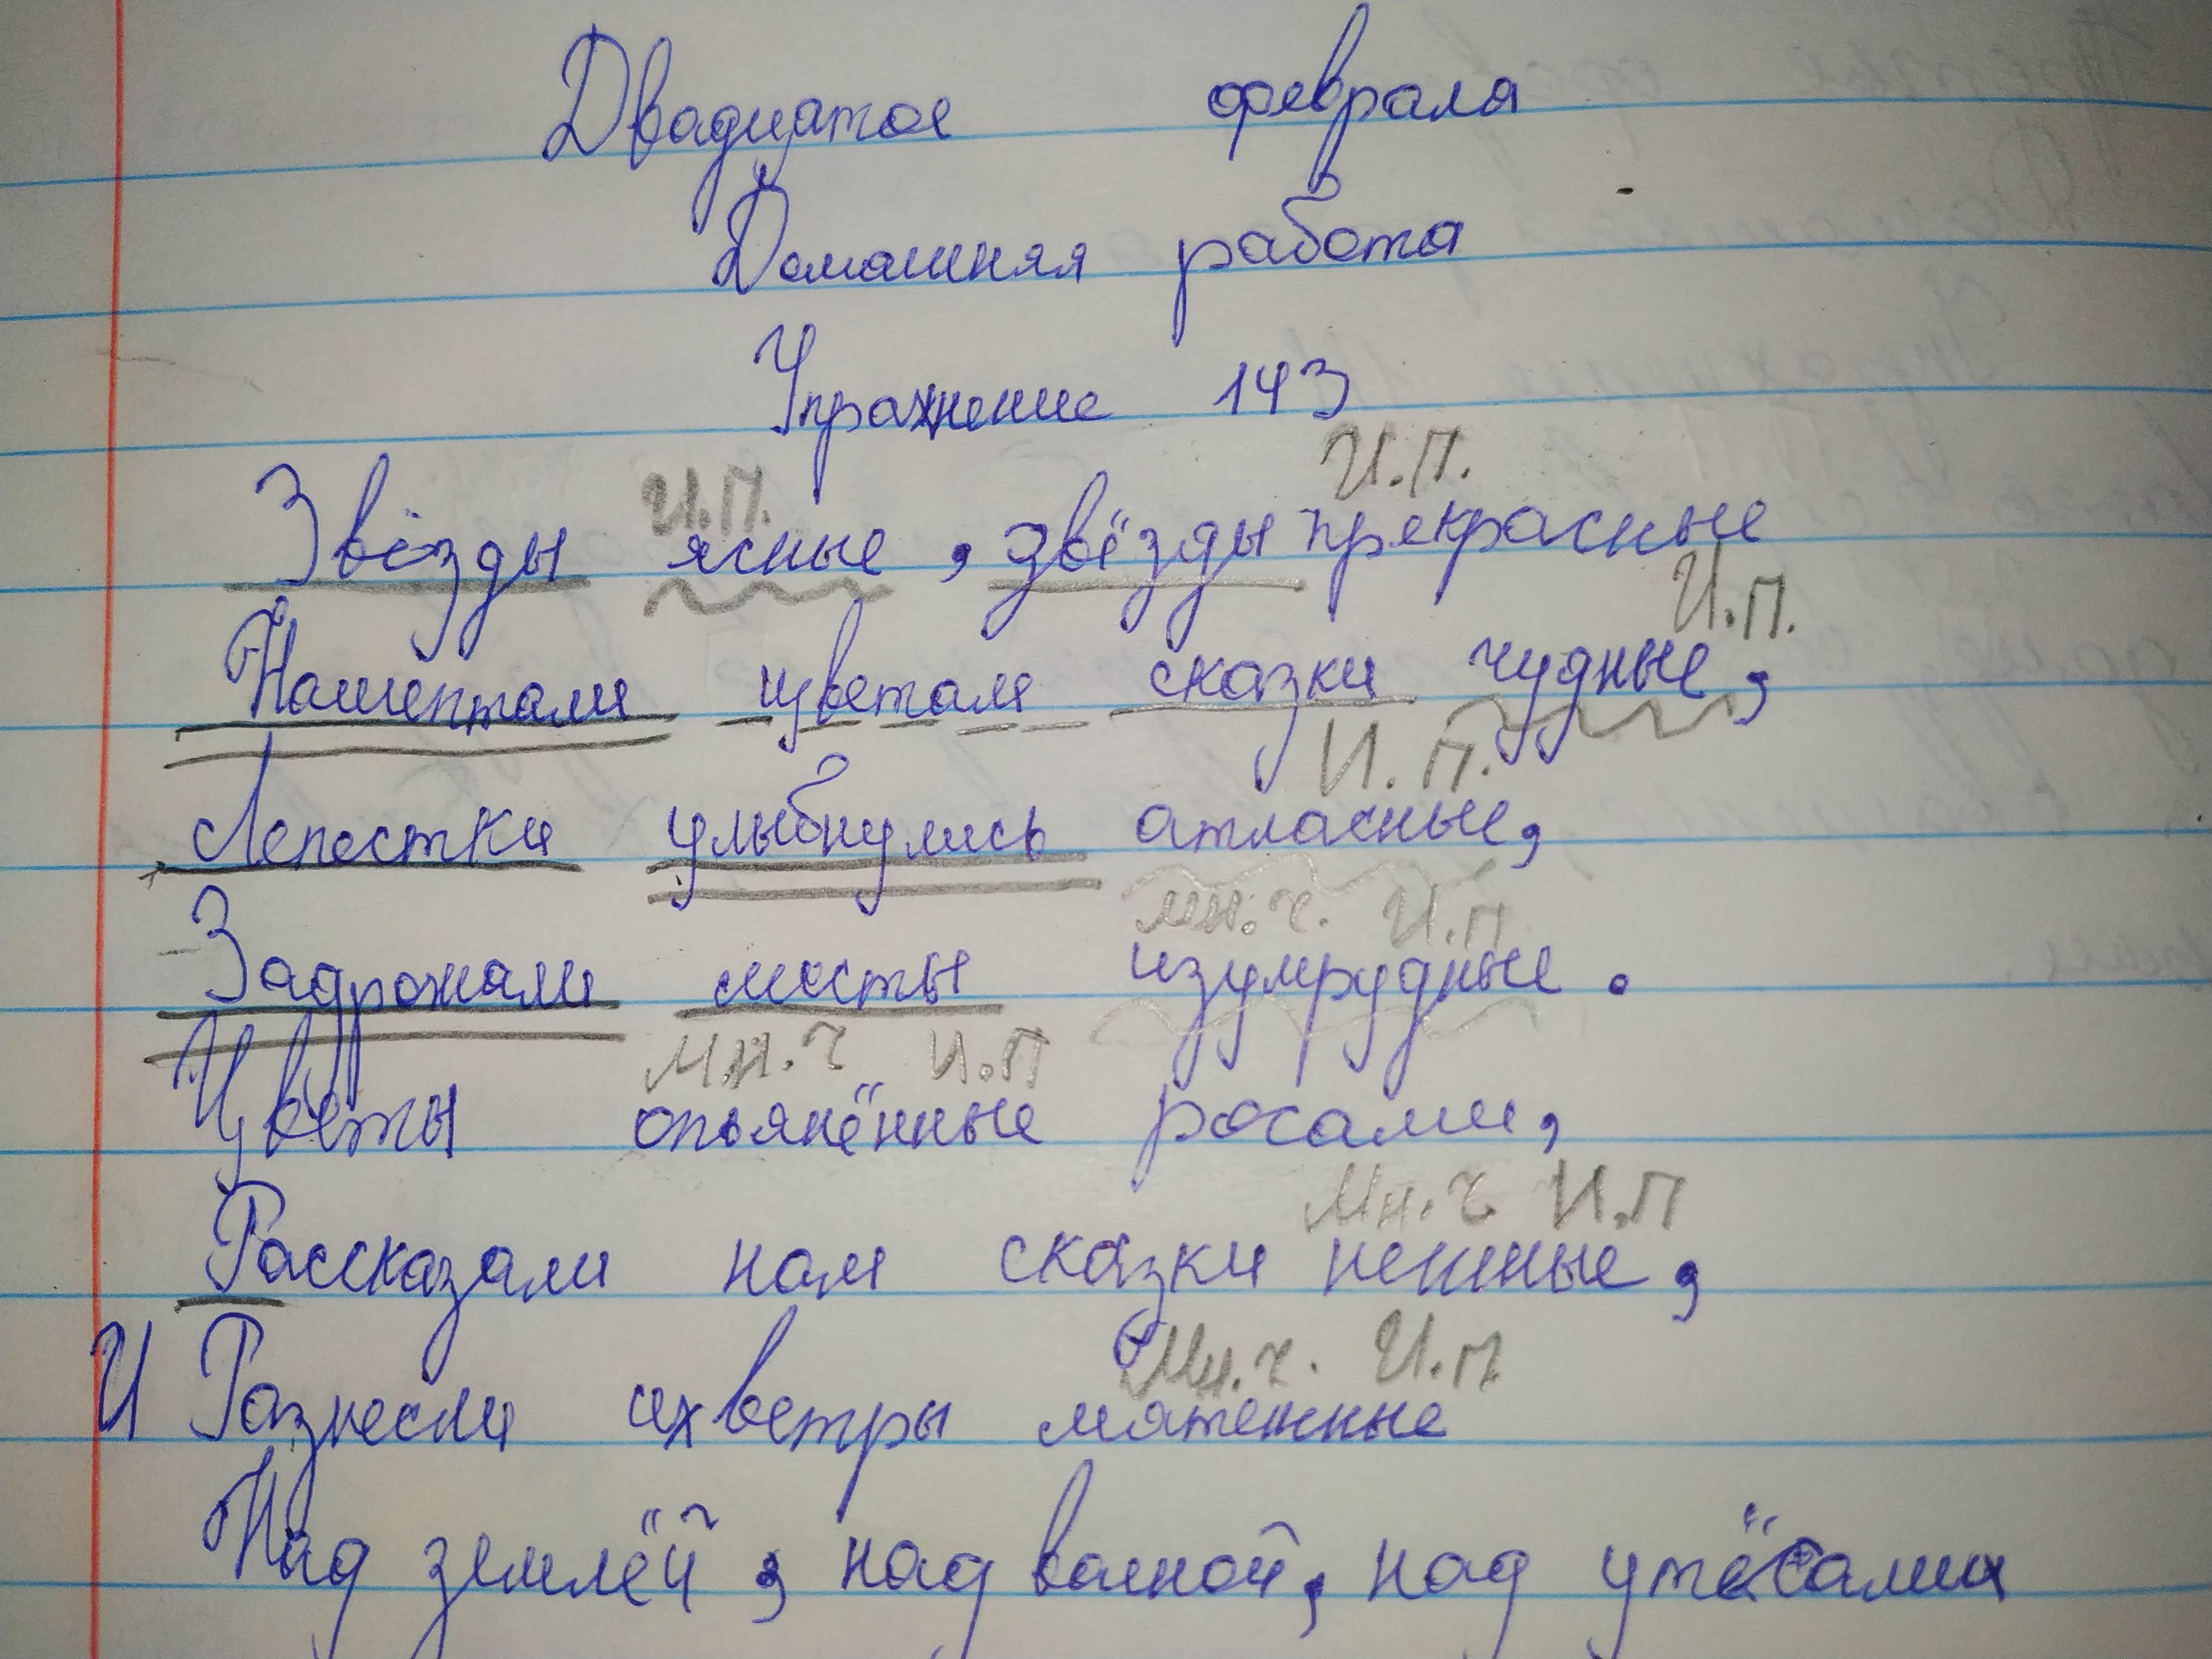 Двадцатое февраля
Домашняя работа
Упражнение 143
И.П. И.П.
Звёзды ясные, звёзды прекрасные
И.П.
Нашептали цветам сказки чудные,
И.П.
Лепестки улыбнулись атласные,
мн.ч. И.П
Задрожали листы изумрудные.
мн.ч И.П
Цветы опьянённые росами,
Мн.ч И.П
Рассказали нам сказки нежные,
Мн.ч. И.П
И Разнесли их ветры мятежные
Над землёй, над волной, над утёсами